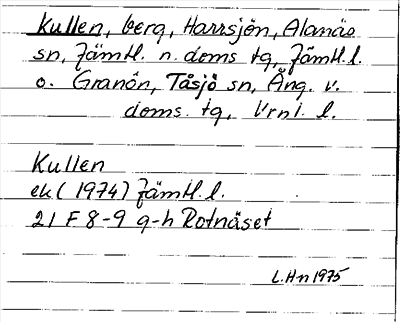 Kullen, berg, Harrsjön, Alanäs
sn, Jämtl. n. doms tg, Jämtl. l.
o. Granön, Tåsjö sn, Ång. v.
doms. tg, Vrnl. l.
Kullen
ek (1974) Jämtl. l.
21 F 8-9 g-h Rotnäset
L.H-n 1975